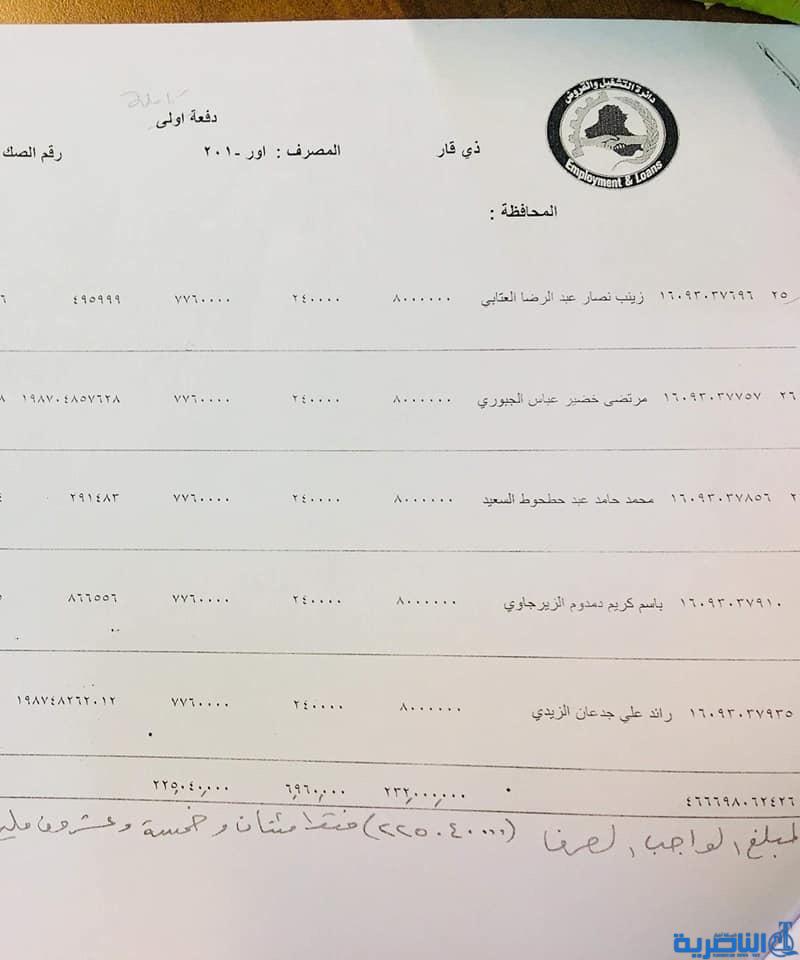 دائرة التشغيل والقروض
Employment & Loans
دفعة اولى
ذي قار المصرف : اور -٢٠١ رقم الصك
المحافظة :
٢٥ ١٦٠٩٣٠٣٧٦٩٦ زينب نصار عبد الرضا العتابي ٨٠٠٠٠٠٠ ٢٤٠٠٠٠ ٧٧٦٠٠٠٠ ٤٩٥٩٩٩ ٦
٢٦ ١٦٠٩٣٠٣٧٧٥٧ مرتضى خضير عباس الجبوري ٨٠٠٠٠٠٠ ٢٤٠٠٠٠ ٧٧٦٠٠٠٠ ١٩٨٧٠٤٨٥٧٦٢٨ ٨
٢ ١٦٠٩٣٠٣٧٨٥٦ محمد حامد عبد حطحوط السعيد ٨٠٠٠٠٠٠ ٢٤٠٠٠٠ ٧٧٦٠٠٠٠ ٢٩١٤٨٣
١٦٠٩٣٠٣٧٩١٠ باسم كريم دمدوم الزيرجاوي ٨٠٠٠٠٠٠ ٢٤٠٠٠٠ ٧٧٦٠٠٠٠ ٨٦٦٥٥٦
١٦٠٩٣٠٣٧٩٣٥ رائد علي جدعان الزيدي ٨٠٠٠٠٠٠ ٢٤٠٠٠٠ ٧٧٦٠٠٠٠ ١٩٨٧٤٨٢٦٢٠١٢
٤٦٦٦٩٨٠٦٢٤٢٦ ٢٣٢,٠٠٠,٠٠٠ ٦,٩٦٠,٠٠٠ ٢٢٥,٠٤٠,٠٠٠
لمبلغ الواجب لصرفها (٢٢٥٠٤٠٠٠٠) فقط مئتان وخمسة وعشرون
شبكة اخبار
الناصرية